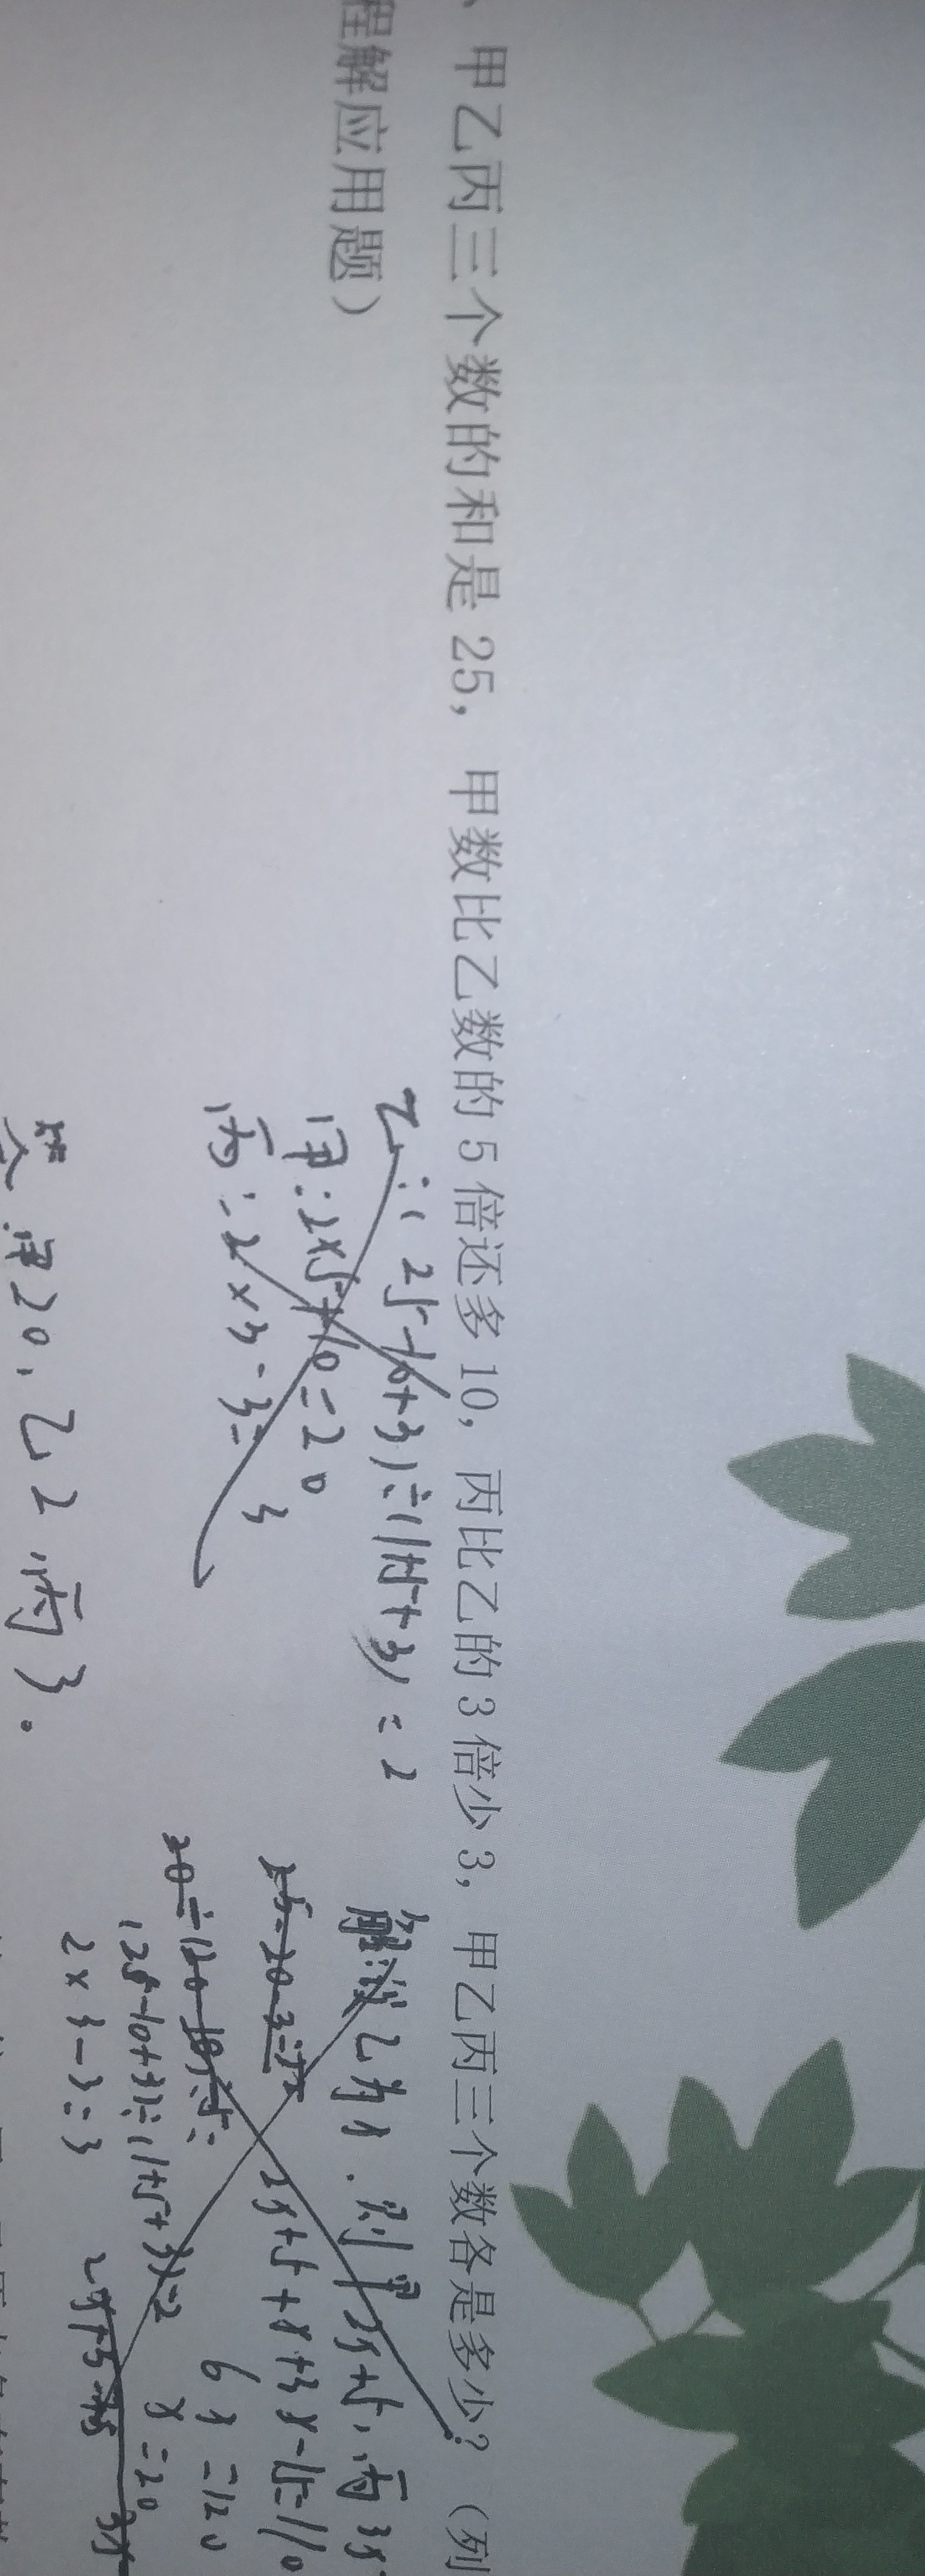 、甲乙丙三个数的和是 25， 甲数比乙数的 5 倍还多 10，丙比乙的 3 倍少 3，甲乙丙三个数各是多少？（列
程解应用题）
乙:(25-10+3)÷(1+5+3)=2
甲:2×5+10=20
丙:2×3-3=3
答:甲20,乙2,丙3。
解:设乙为x.则甲2x+5,丙3x
25-20-3=
2x+5+x+3x-15=110
6x=120
(25-10+3)÷(1+5+3)=2
x=20
2×3-3=3